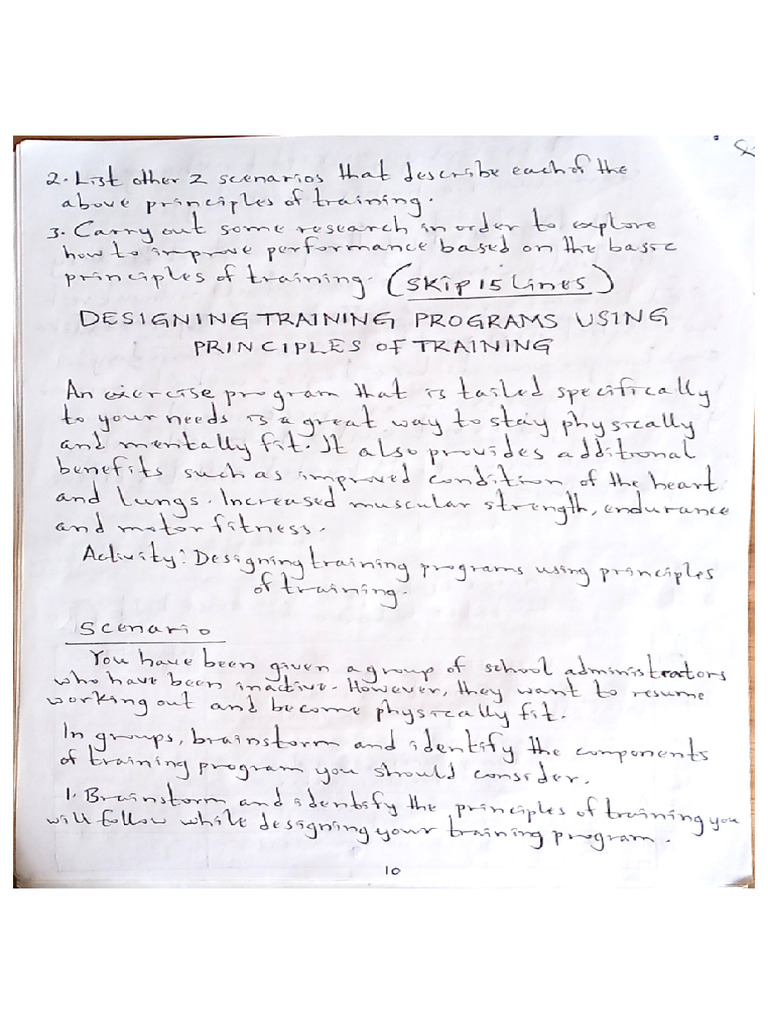 2. List other 2 scenarios that describe each of the
above principles of training.
3. Carry out some research in order to explore
how to improve performance based on the basic
principles of training. (SKIP 15 Lines)
DESIGNING TRAINING PROGRAMS USING
PRINCIPLES OF TRAINING
An exercise program that is tailed specifically
to your needs is a great way to stay physically
and mentally fit. It also provides additional
benefits such as improved condition of the heart
and lungs. Increased muscular strength, endurance
and motor fitness.
Activity: Designing training programs using principles
of training.
Scenario
You have been given a group of school administrators
who have been inactive. However, they want to resume
working out and become physically fit.
In groups, brainstorm and identify the components
of training program you should consider.
1. Brainstorm and identify the principles of training you
will follow while designing your training program.
10